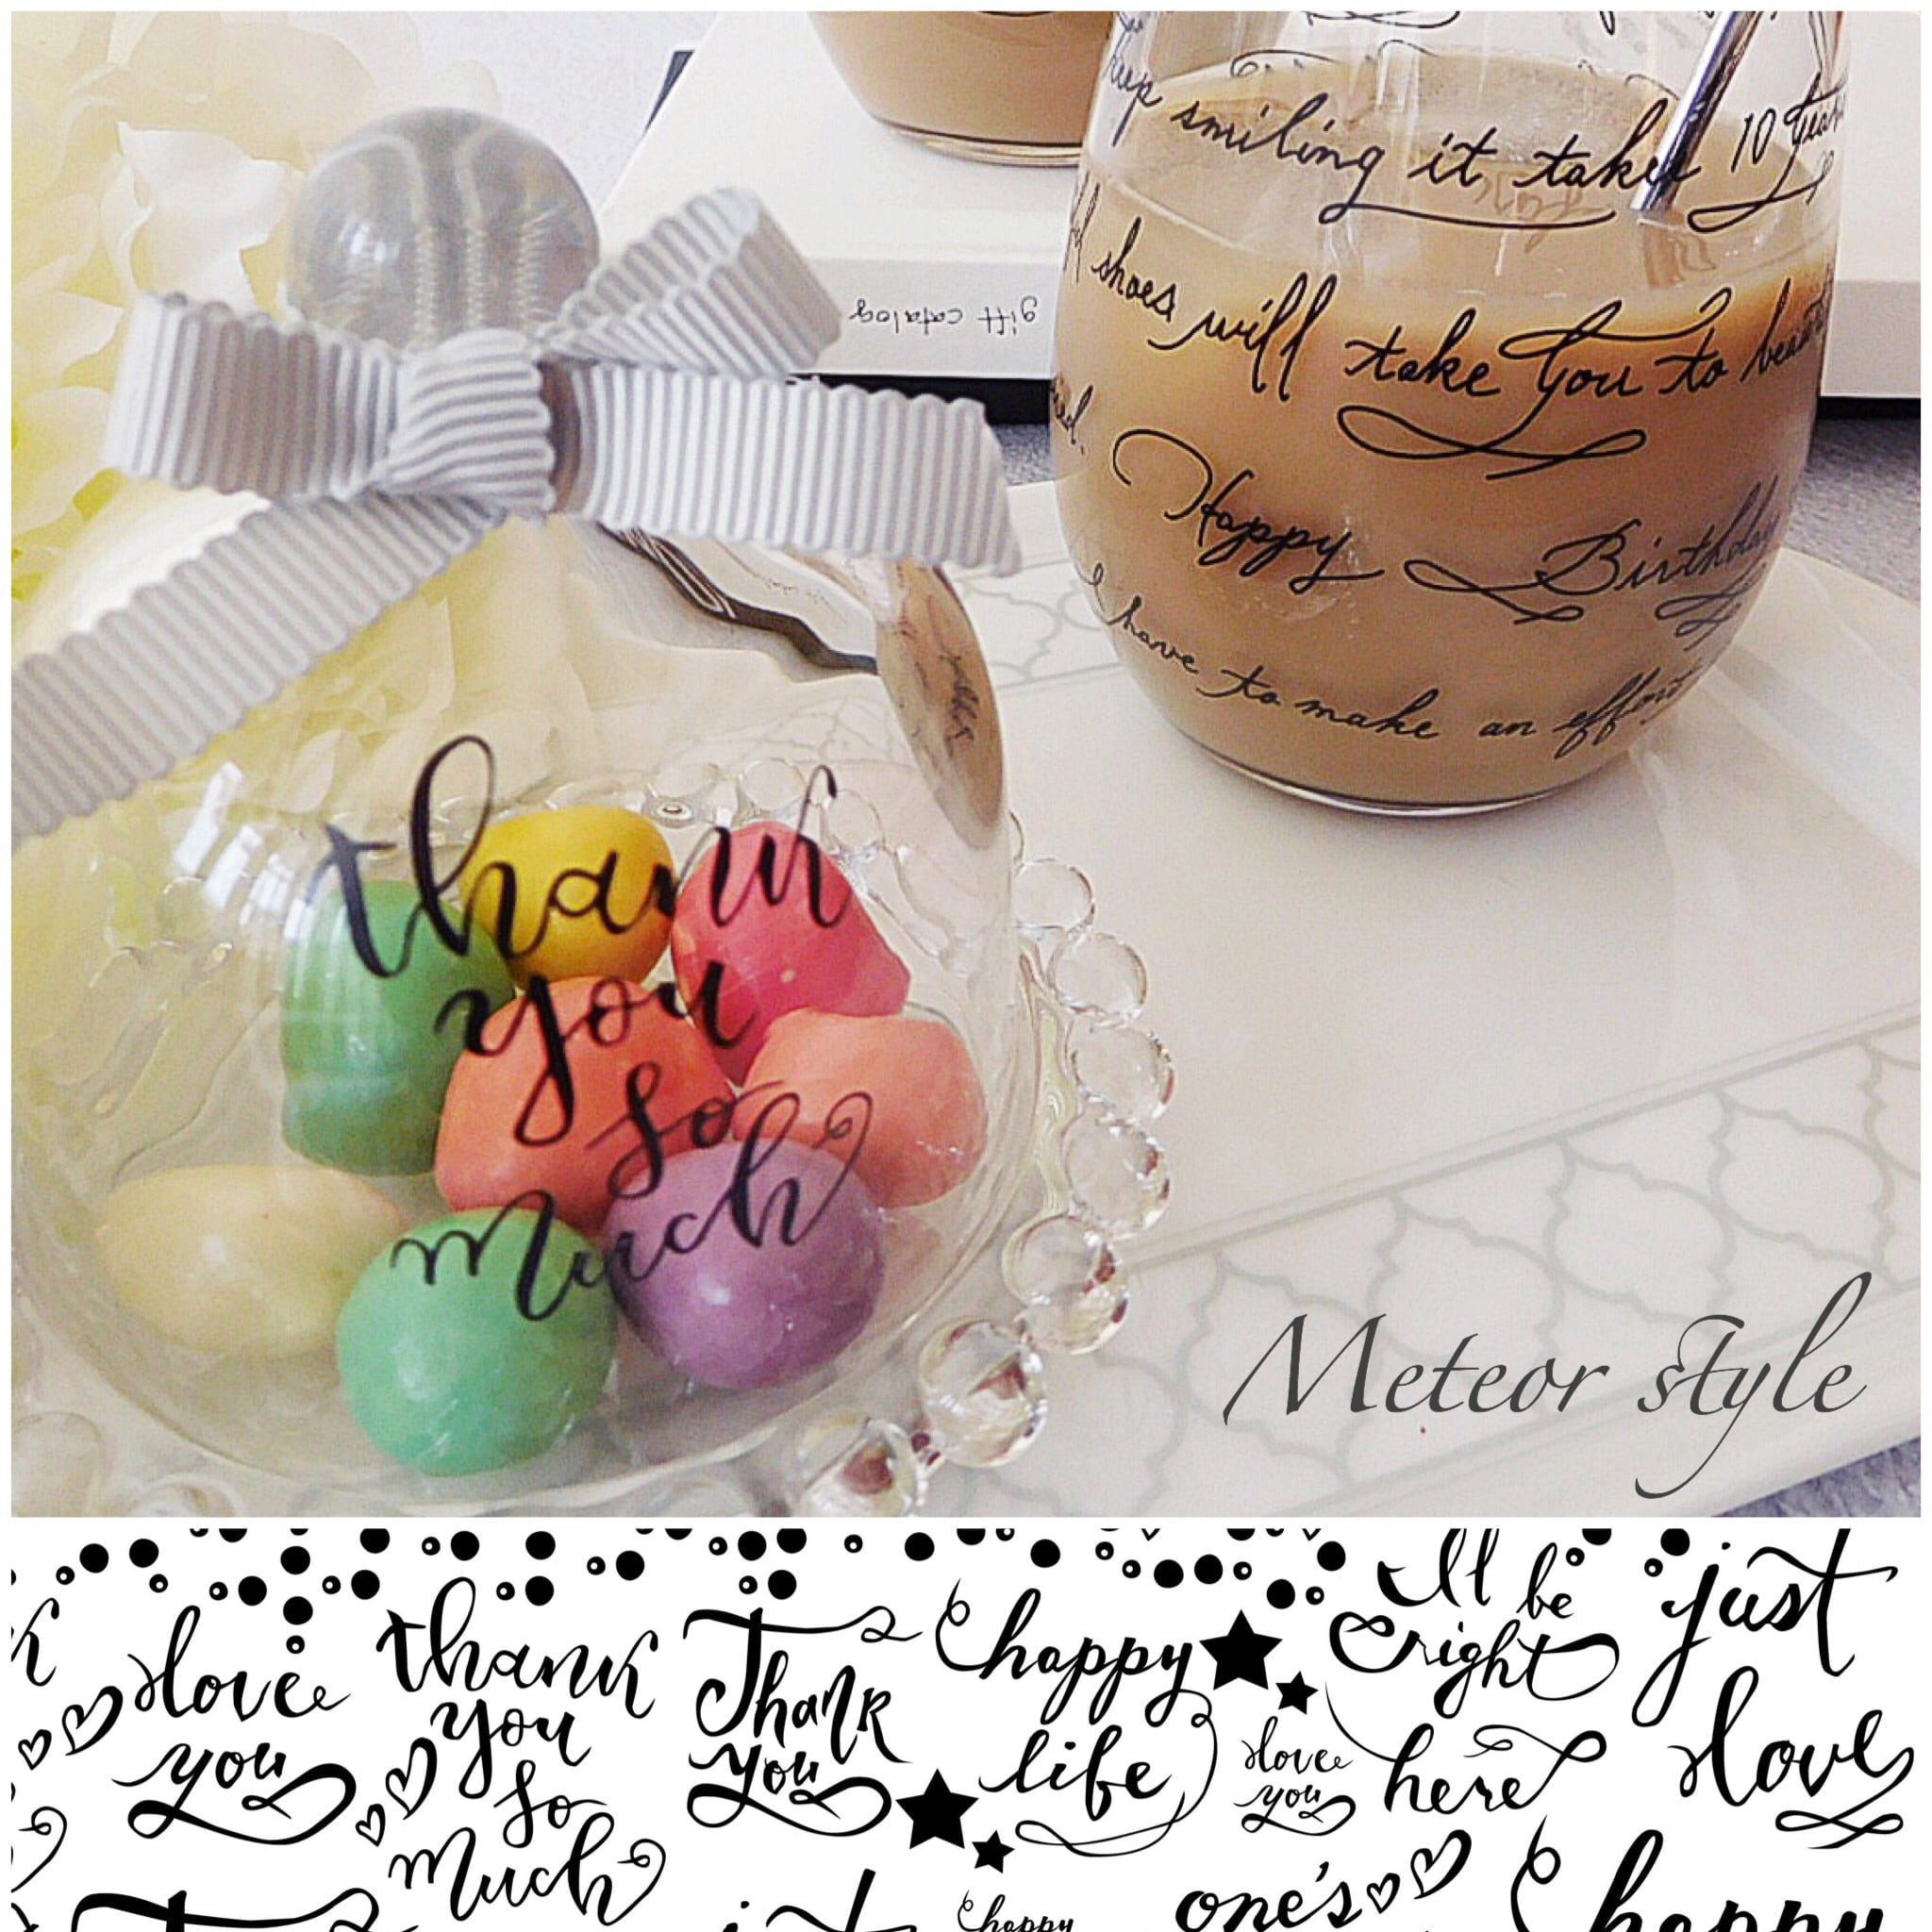 keep smiling it takes 10 years
shoes will take you to
Happy Birthday
I have to make an effort
gift catalog
thank
you
so
much
Meteor style
love
you
thank
you
so
much
Thank
you
happy
life
I'll be
right
here
love
you
just
love
happy
one's
happy